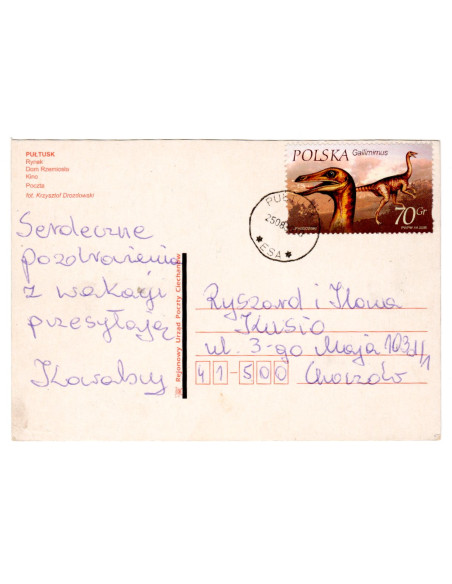 PUŁTUSK
Rynek
Dom Rzemiosła
Kino
Poczta
fot. Krzysztof Drozdowski
Serdeczne
pozdrowienia
z wakacji
przesyłają
Kowalscy
Rejonowy Urząd Poczty Ciechanów
POLSKA
Gallimimus
70 Gr
PUŁ
2508
* ESA *
Ryszard i Ilona
Kusio
ul. 3-go Maja
41-500 Chorzów